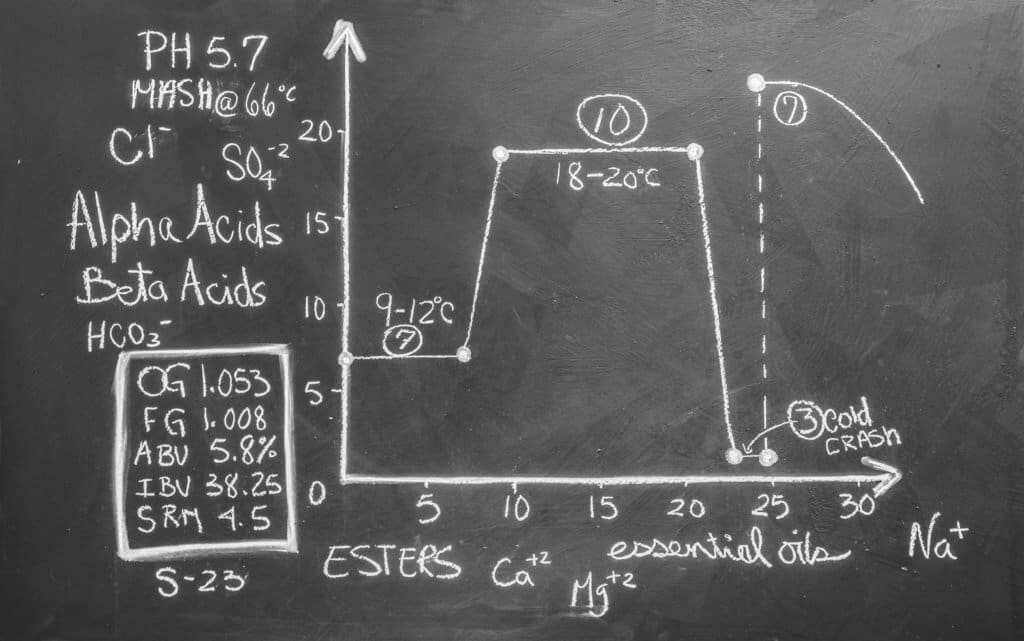 PH 5.7
MASH@66°C
Cl⁻
SO₄⁻²
Alpha Acids
Beta Acids
HCO₃⁻
OG 1.053
FG 1.008
ABV 5.8%
IBV 38.25
SRM 4.5
S-23
20
15
10
5
0
9-12°C
7
10
18-20°C
7
3 Cold
CRASH
5 10 15 20 25 30
ESTERS
Ca⁺²
Mg⁺²
essential oils
Na⁺